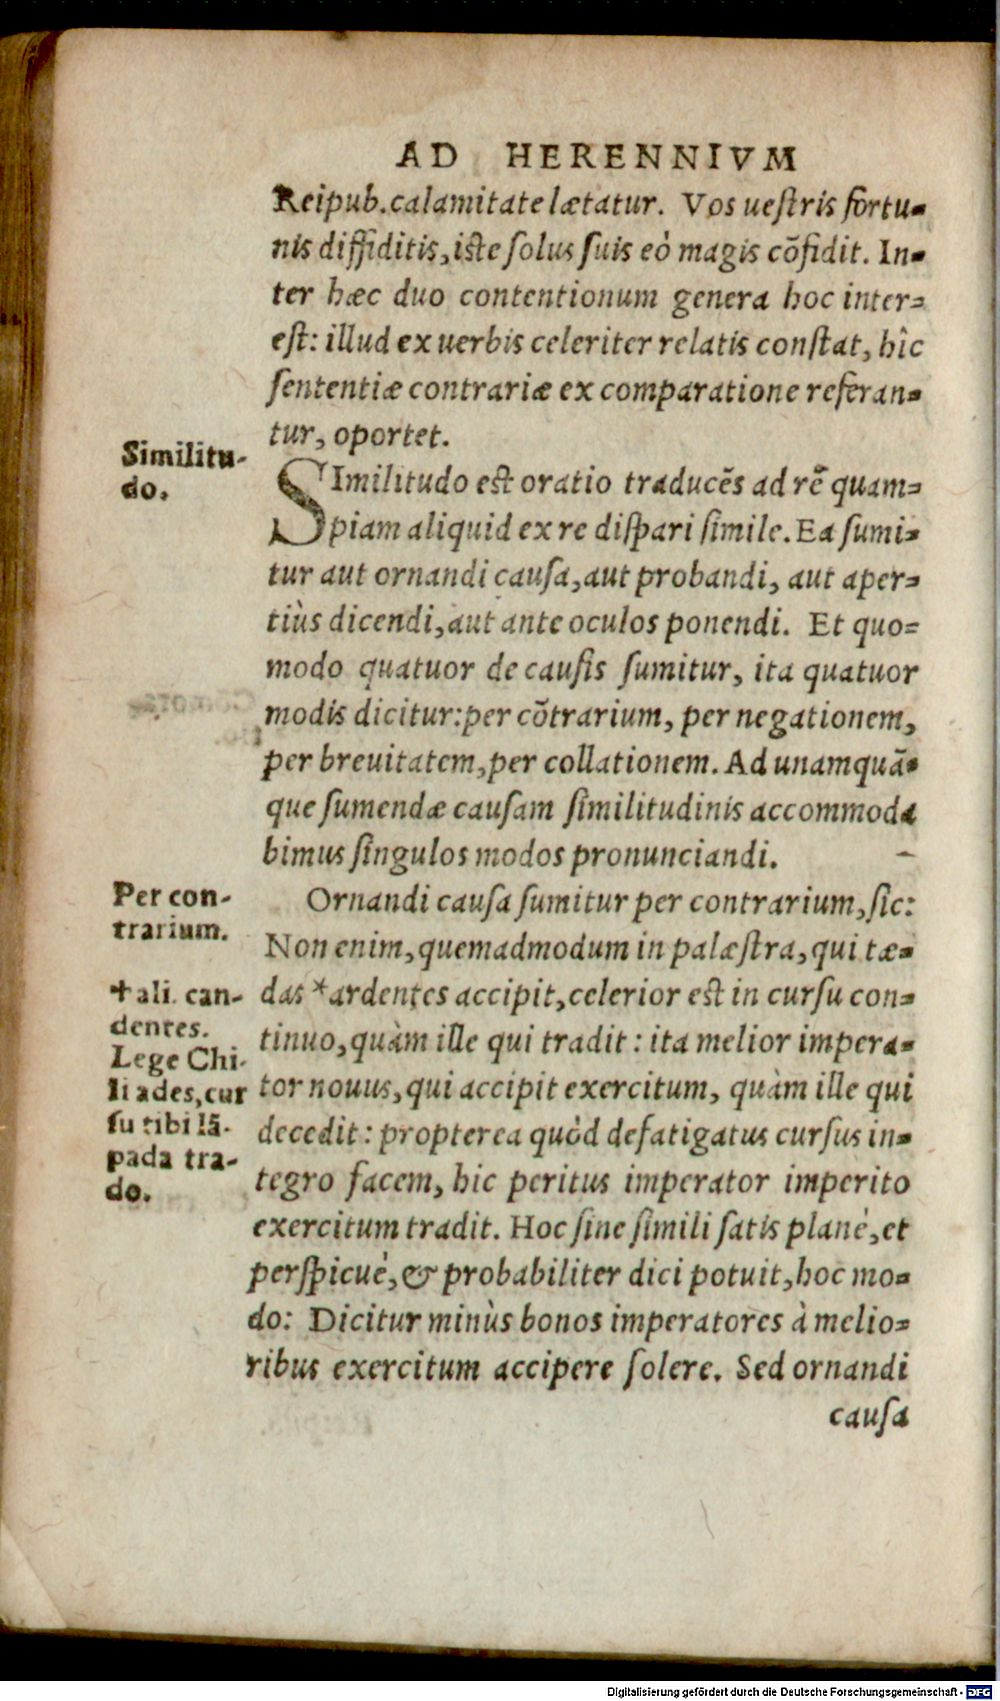 AD HERENNIVM
Reipub. calamitate lætatur. Vos ueſtris fortu-
nis diffiditis, iſte ſolus ſuis eò magis cõfidit. In-
ter hæc duo contentionum genera hoc inter-
eſt: illud ex uerbis celeriter relatis conſtat, hîc
ſententiæ contrariæ ex comparatione referan-
tur, oportet.
Similitu-
do.
SImilitudo eſt oratio traducẽs ad rẽ quam-
piam aliquid ex re diſpari ſimile. Ea ſumi-
tur aut ornandi cauſa, aut probandi, aut aper-
tiùs dicendi, aut ante oculos ponendi. Et quo-
modo quatuor de cauſis ſumitur, ita quatuor
modis dicitur: per cõtrarium, per negationem,
per breuitatem, per collationem. Ad unamquã-
que ſumendæ cauſam ſimilitudinis accommoda
bimus ſingulos modos pronunciandi. -
Per con-
trarium.
Ornandi cauſa ſumitur per contrarium, ſic:
Non enim, quemadmodum in palæſtra, qui tæ-
das *ardentes accipit, celerior eſt in curſu con-
tinuo, quàm ille qui tradit: ita melior impera-
tor nouus, qui accipit exercitum, quàm ille qui
decedit: propterea quòd defatigatus curſus in-
tegro facem, hic peritus imperator imperito
exercitum tradit. Hoc ſine ſimili ſatis planè, et
perſpicuè, & probabiliter dici potuit, hoc mo-
do: Dicitur minùs bonos imperatores à melio-
ribus exercitum accipere ſolere. Sed ornandi
+ali. can-
dentes.
Lege Chi-
liades, cur
ſu tibi lã-
pada tra-
do.
cauſa
Digitalisierung gefördert durch die Deutsche Forschungsgemeinschaft - DFG